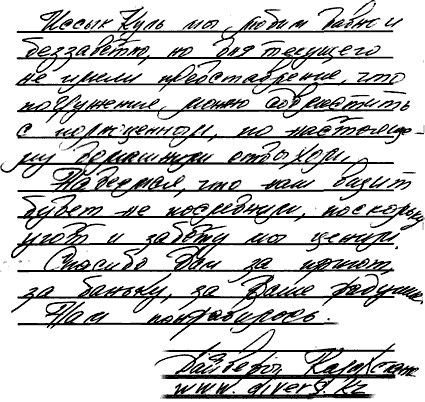 Иссык Куль мы любим давно и
беззаветно, но для текущего
не имели представление, что
погружения, можно совместить
с полноценным, по-настояще-
му домашним отдыхом.
Надеемся, что наш визит
будет не последним, поскольку
уют и заботу мы ценим.
Спасибо Вам за приют,
за баньку, за Ваше радушие.
Нам понравилось.
Дайверы Казахстана
www.divers.kz